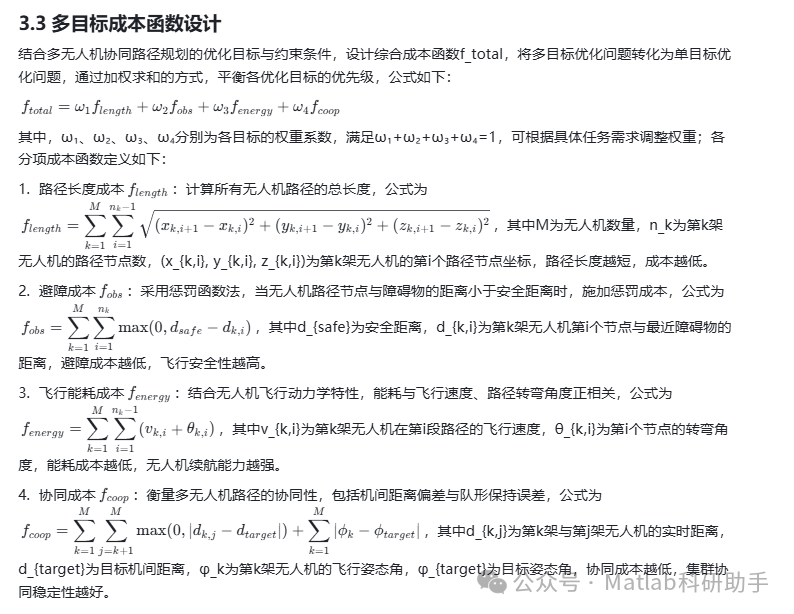 3.3 多目标成本函数设计
结合多无人机协同路径规划的优化目标与约束条件，设计综合成本函数f_total，将多目标优化问题转化为单目标优
化问题，通过加权求和的方式，平衡各优化目标的优先级，公式如下：
f_{total} = ω_1 f_{length} + ω_2 f_{obs} + ω_3 f_{energy} + ω_4 f_{coop}
其中，ω₁、ω₂、ω₃、ω₄分别为各目标的权重系数，满足ω₁+ω₂+ω₃+ω₄=1，可根据具体任务需求调整权重；各
分项成本函数定义如下：
1. 路径长度成本 f_{length}：计算所有无人机路径的总长度，公式为
f_{length} = \sum_{k=1}^{M} \sum_{i=1}^{n_k-1} \sqrt{(x_{k,i+1} - x_{k,i})^2 + (y_{k,i+1} - y_{k,i})^2 + (z_{k,i+1} - z_{k,i})^2}，其中M为无人机数量，n_k为第k架
无人机的路径节点数，(x_{k,i}, y_{k,i}, z_{k,i})为第k架无人机的第i个路径节点坐标，路径长度越短，成本越低。
2. 避障成本 f_{obs}：采用惩罚函数法，当无人机路径节点与障碍物的距离小于安全距离时，施加惩罚成本，公式为
f_{obs} = \sum_{k=1}^{M} \sum_{i=1}^{n_k} max(0, d_{safe} - d_{k,i})，其中d_{safe}为安全距离，d_{k,i}为第k架无人机第i个节点与最近障碍物的
距离，避障成本越低，飞行安全性越高。
3. 飞行能耗成本 f_{energy}：结合无人机飞行动力学特性，能耗与飞行速度、路径转弯角度正相关，公式为
f_{energy} = \sum_{k=1}^{M} \sum_{i=1}^{n_k-1} (v_{k,i} + θ_{k,i})，其中v_{k,i}为第k架无人机在第i段路径的飞行速度，θ_{k,i}为第i个节点的转弯角
度，能耗成本越低，无人机续航能力越强。
4. 协同成本 f_{coop}：衡量多无人机路径的协同性，包括机间距离偏差与队形保持误差，公式为
f_{coop} = \sum_{k=1}^{M} \sum_{j=k+1}^{M} max(0, |d_{k,j} - d_{target}|) + \sum_{k=1}^{M} |ϕ_k - ϕ_{target}|，其中d_{k,j}为第k架与第j架无人机的实时距离，
d_{target}为目标机间距离，φ_k为第k架无人机的飞行姿态角，φ_{target}为目标姿态角，协同成本越低，集群协
同稳定性越好。
公众号 · Matlab科研助手